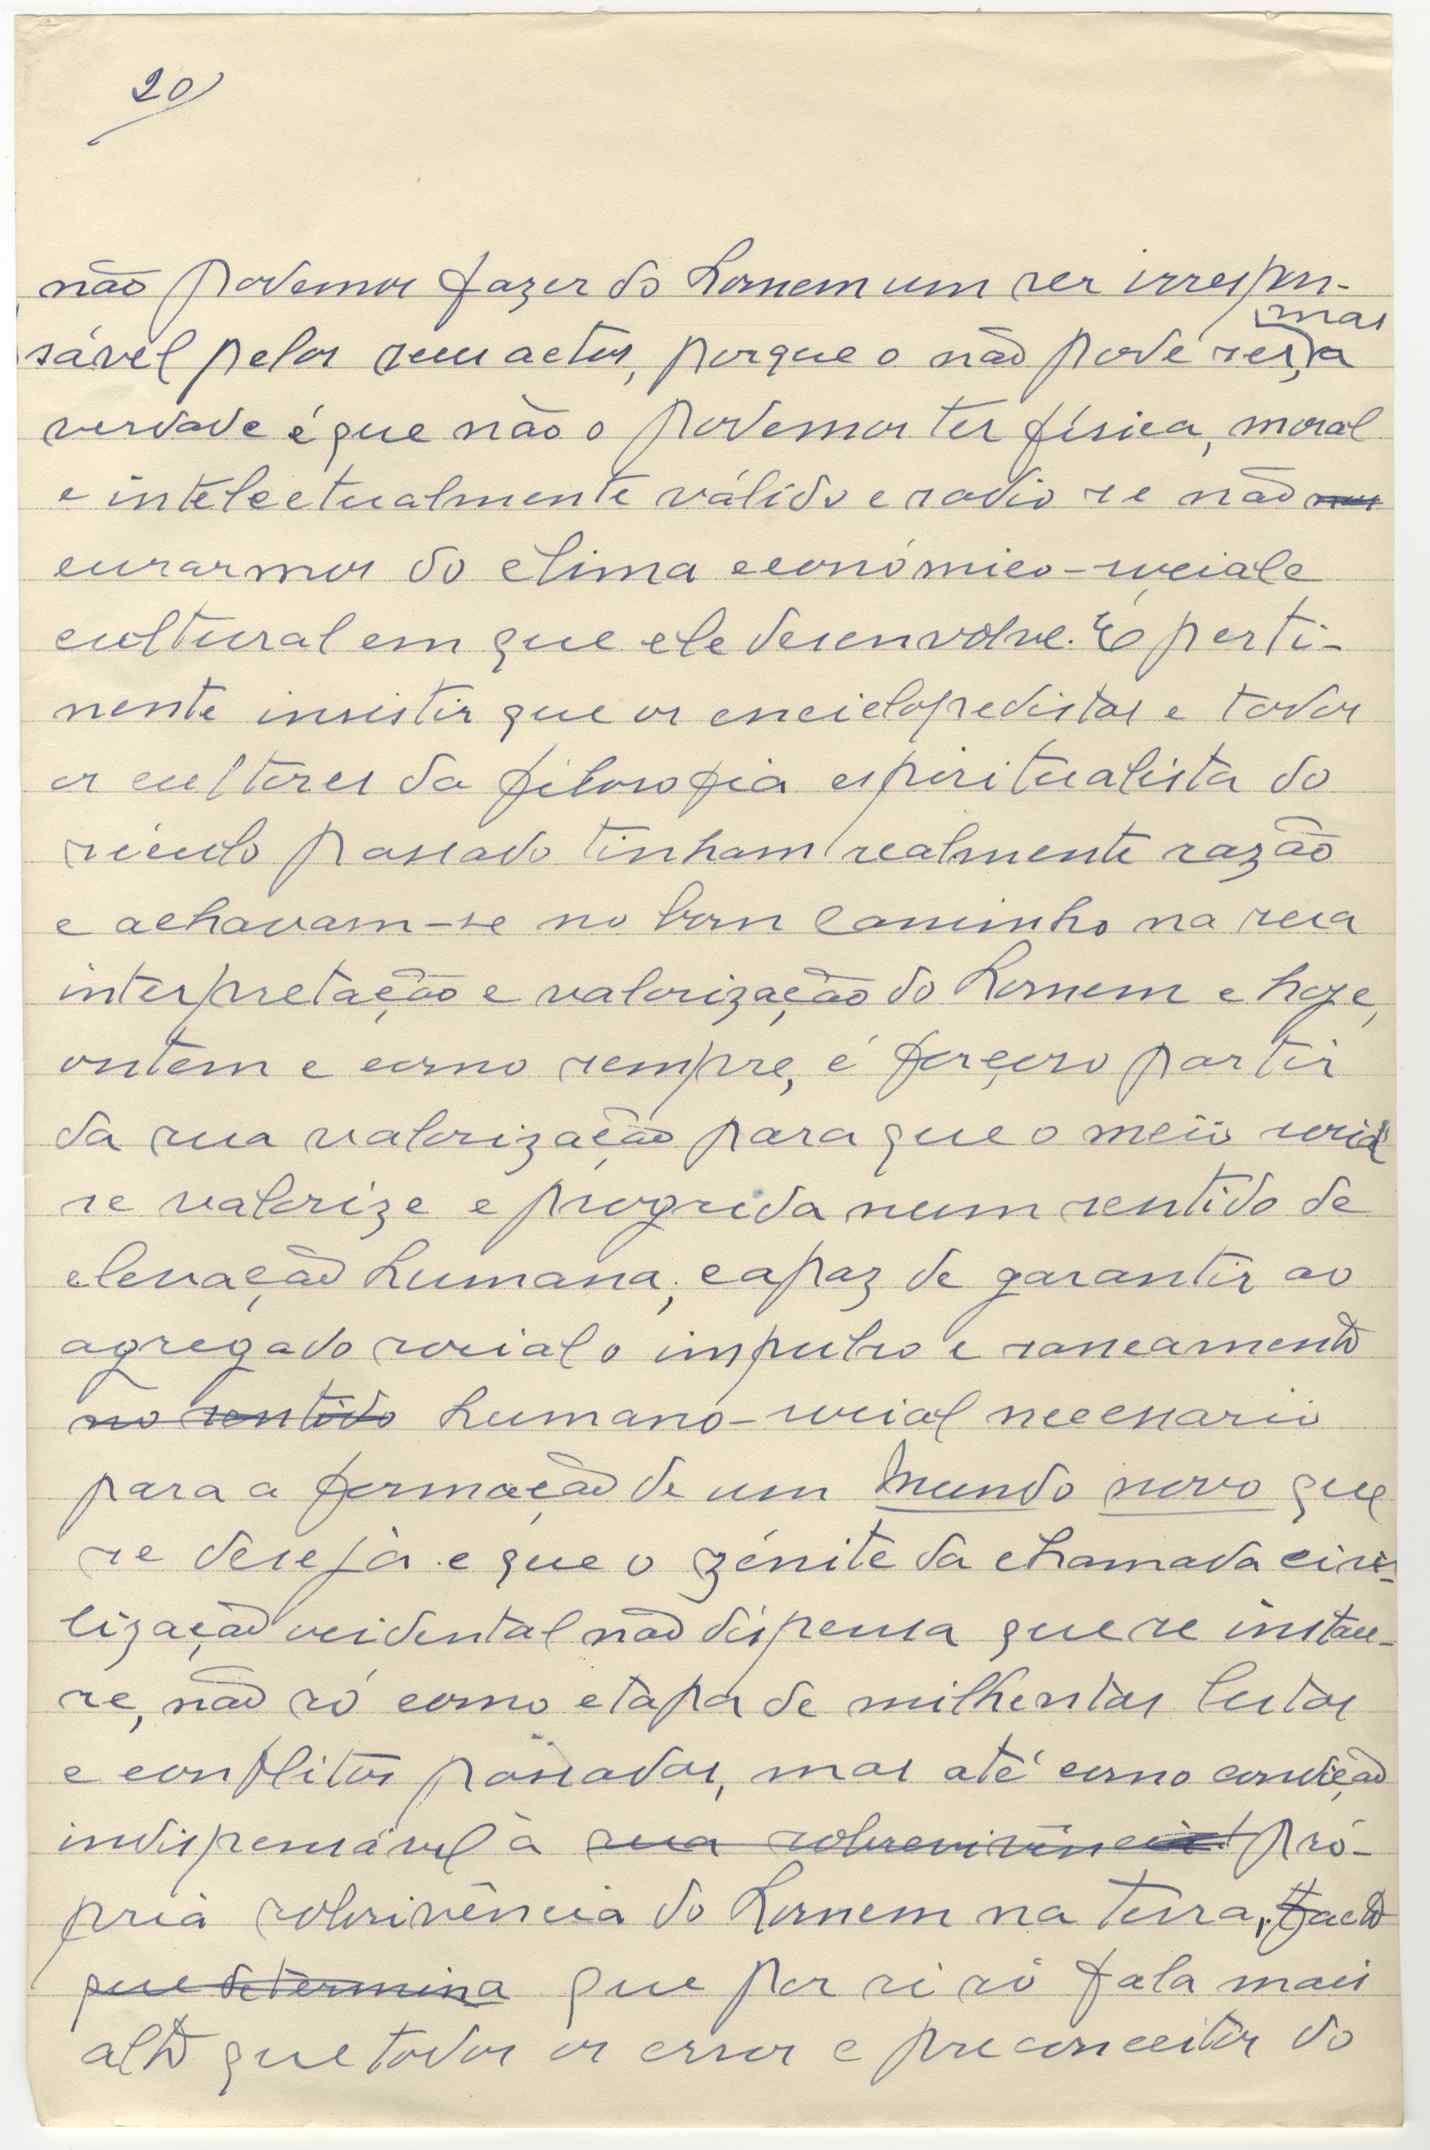 20
não podemos fazer do homem um ser irrespon-
mas
sável pelos seus actos, porque o não pode ser, a
verdade é que não o podemos ter física, moral
e intelectualmente válido e sadio se não nos
curarmos do clima económico-social e
cultural em que ele desenvolve. É perti-
nente insistir que os enciclopedistas e todos
os cultores da filosofia espiritualista do
século passado tinham realmente razão
e achavam-se no bom caminho na sua
interpretação e valorização do homem e hoje,
ontem e como sempre, é forçoso partir
da sua valorização para que o meio social
se valorize e progrida num sentido de
elevação humana, capaz de garantir ao
agregado social o impulso e saneamento
no sentido humano-social necessario
para a formação de um Mundo novo que
se deseja e que o zénite da chamada civi-
lização ocidental não dispensa que se instau-
re, não só como etapa de milhentas lutas
e conflitos passados, mas até como condição
indispensável à sua sobrevivência pró-
pria sobrivência do homem na terra, facto
que determina que por si só fala mais
alto que todos os erros e preconceitos do